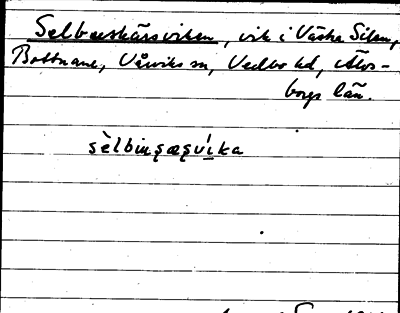 Selbaskärsviken, vik i Västra Silen,
Bottnane, Vårviks sn, Vedbo hd, Älvs-
borgs län.
sèlbinşæşvíka